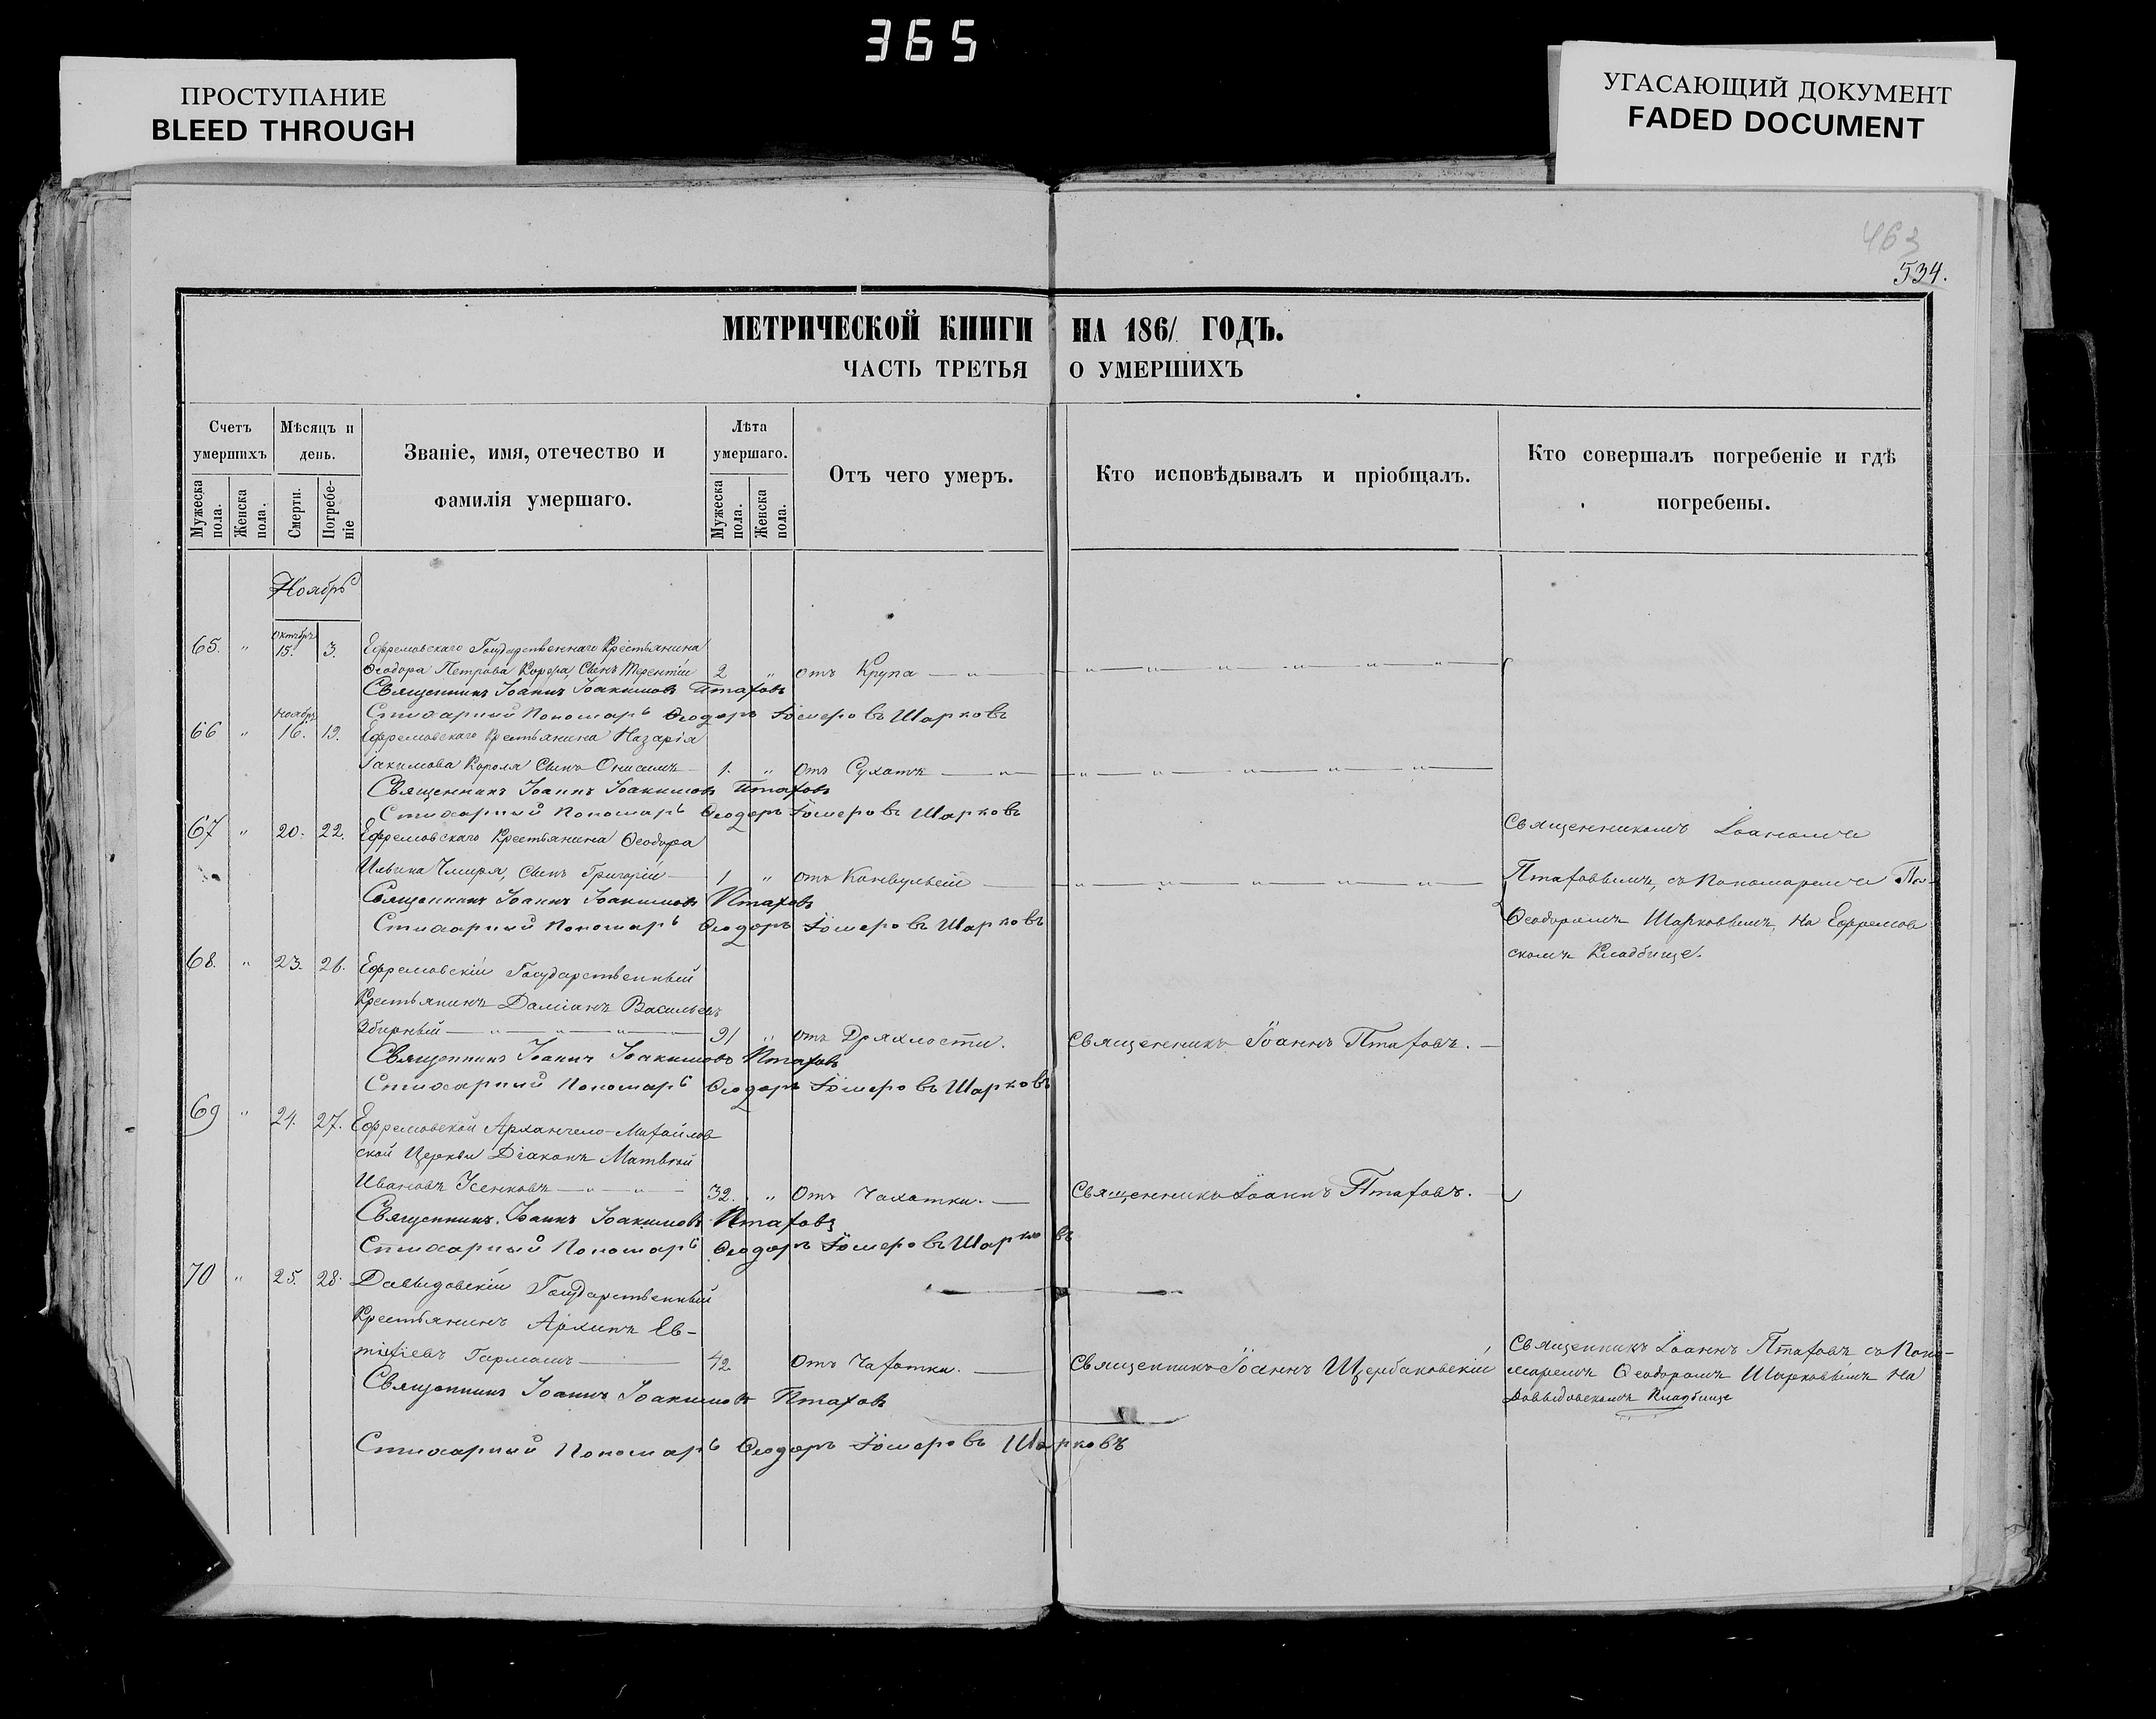 365
ПРОСТУПАНИЕ
BLEED THROUGH
УГАСАЮЩИЙ ДОКУМЕНТ
FADED DOCUMENT
463
534.
МЕТРИЧЕСКОЙ КНИГИ НА 1861 ГОДЪ.
ЧАСТЬ ТРЕТЬЯ О УМЕРШИХЪ
Счетъ умершихъ
Мужеска пола.
Женска пола.
Мѣсяцъ и день.
Смерти.
Погребеніе
Званіе, имя, отечество и
фамилія умершаго.
Лѣта умершаго.
Мужеска пола.
Женска пола.
Отъ чего умеръ.
Кто исповѣдывалъ и пріобщалъ.
Кто совершалъ погребеніе и гдѣ
погребены.
Ноябрь
65. " Октябрь 15. 3. Ефремовскаго Государственнаго Крестьянина
Ѳеодора Петрова сынъ Терентій 2 " отъ Крупа
Священникъ Іоаннъ Іоакимовъ Птаховъ
Стихарный Пономарь Ѳеодоръ Шарковъ
66 " Ноябрь 16. 19. Ефремовскаго Крестьянина Назарія
Іакимова Короля сынъ Онисимъ 1. " Отъ Сухотъ
Священникъ Іоаннъ Іоакимовъ Птаховъ
Стихарный Пономарь Ѳеодоръ Шарковъ
67 " 20. 22. Ефремовскаго Крестьянина Ѳеодора
Ильина сынъ Григорій 1 " отъ Конвульсій
Священникъ Іоаннъ Іоакимовъ Птаховъ
Стихарный Пономарь Ѳеодоръ Шарковъ
Священникомъ Іоанномъ
Птаховымъ, съ Пономаремъ
Ѳеодоромъ Шарковымъ, на Ефремов
скомъ Кладбище.
68. " 23. 26. Ефремовскій Государственный
Крестьянинъ Даміанъ Васильевъ
Збирный 91 " отъ Дряхлости. Священникъ Іоаннъ Птаховъ.
Священникъ Іоаннъ Іоакимовъ Птаховъ
Стихарный Пономарь Ѳеодоръ Шарковъ
69 " 24. 27. Ефремовской Архангело-Михайлов
ской Церкви Діаконъ Матвѣй
Ивановъ Усенковъ 32. " Отъ Чахотки. Священникъ Іоаннъ Птаховъ.
Священникъ Іоаннъ Іоакимовъ Птаховъ
Стихарный Пономарь Ѳеодоръ Шарковъ
70 " 25. 28. Давыдовскій Государственный
Крестьянинъ Архипъ Ев-
тихіевъ Гармашъ 42. Отъ Чахотки. Священникъ Іоаннъ Щербаковскій
Священникъ Іоаннъ Птаховъ съ Поно-
маремъ Ѳеодоромъ Шарковымъ на
Давыдовскомъ Кладбище
Священникъ Іоаннъ Іоакимовъ Птаховъ
Стихарный Пономарь Ѳеодоръ Шарковъ